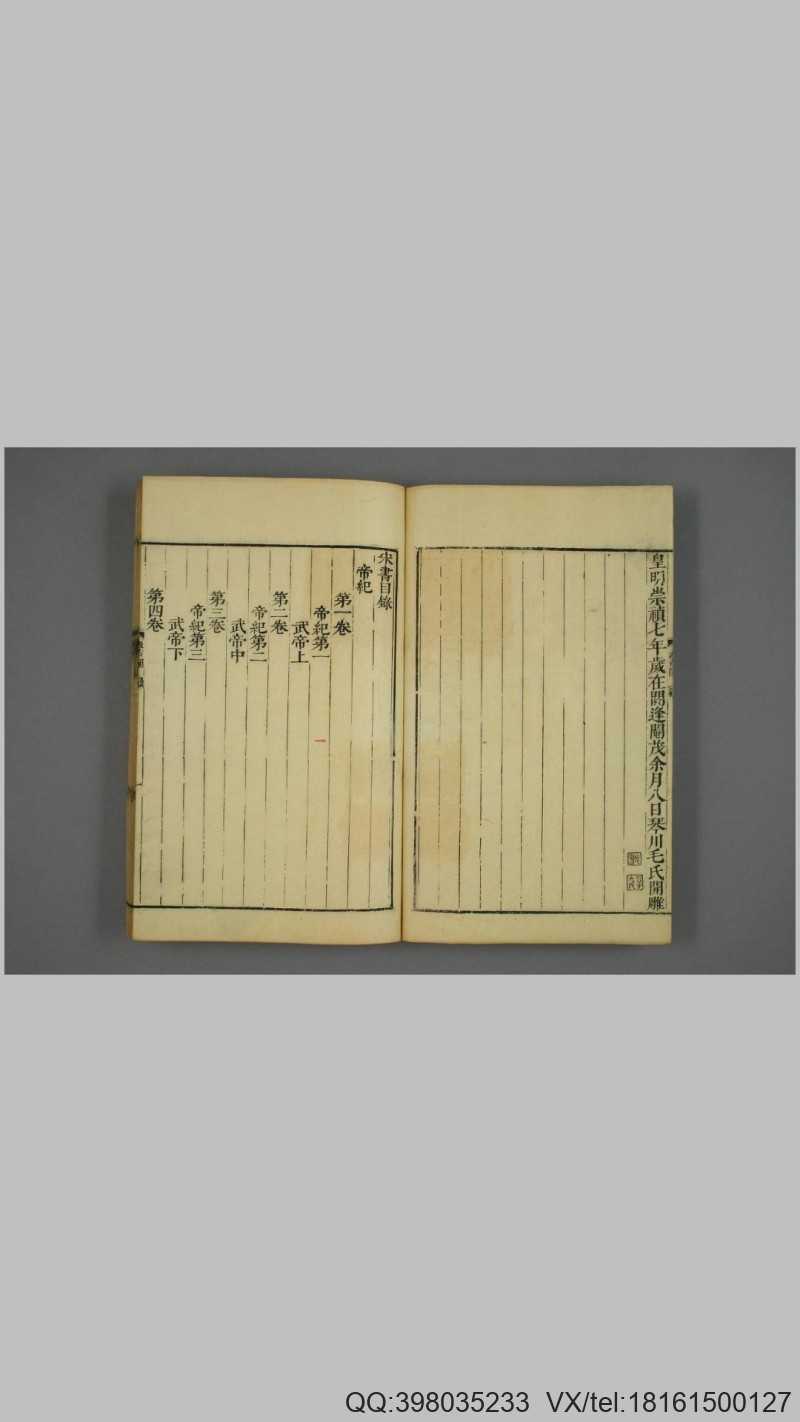 皇明崇禎七年歲在閼逢閹茂余月八日琴川毛氏開雕
宋書目錄
帝紀
第一卷
帝紀第一
武帝上
第二卷
帝紀第二
武帝中
第三卷
帝紀第三
武帝下
第四卷
QQ:398035233 VX/tel:18161500127